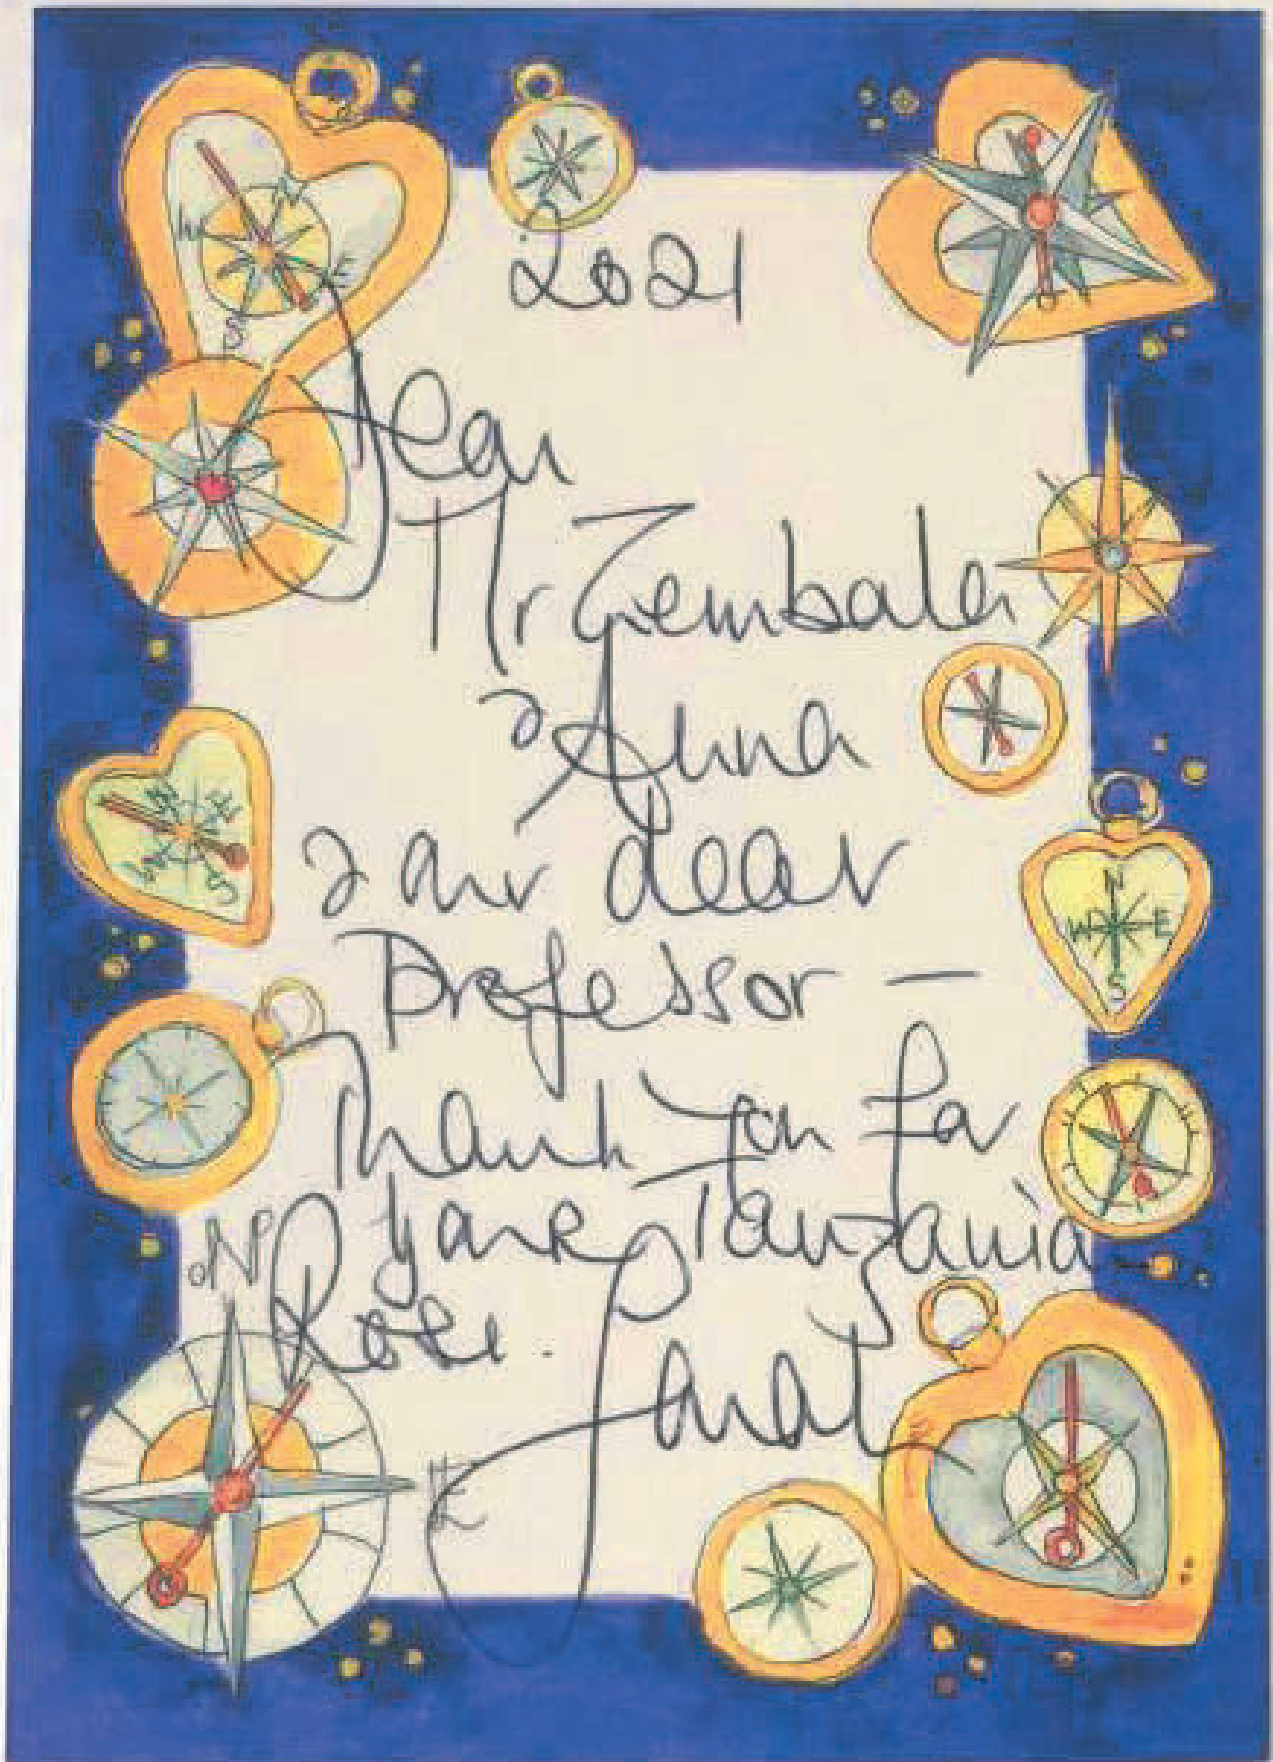 2021
Dear
Mr Zembala
& Anna
& our dear
Professor —
Thank you for
your Tanzania
Rose.
N
S
E
N
W E
S
N
E